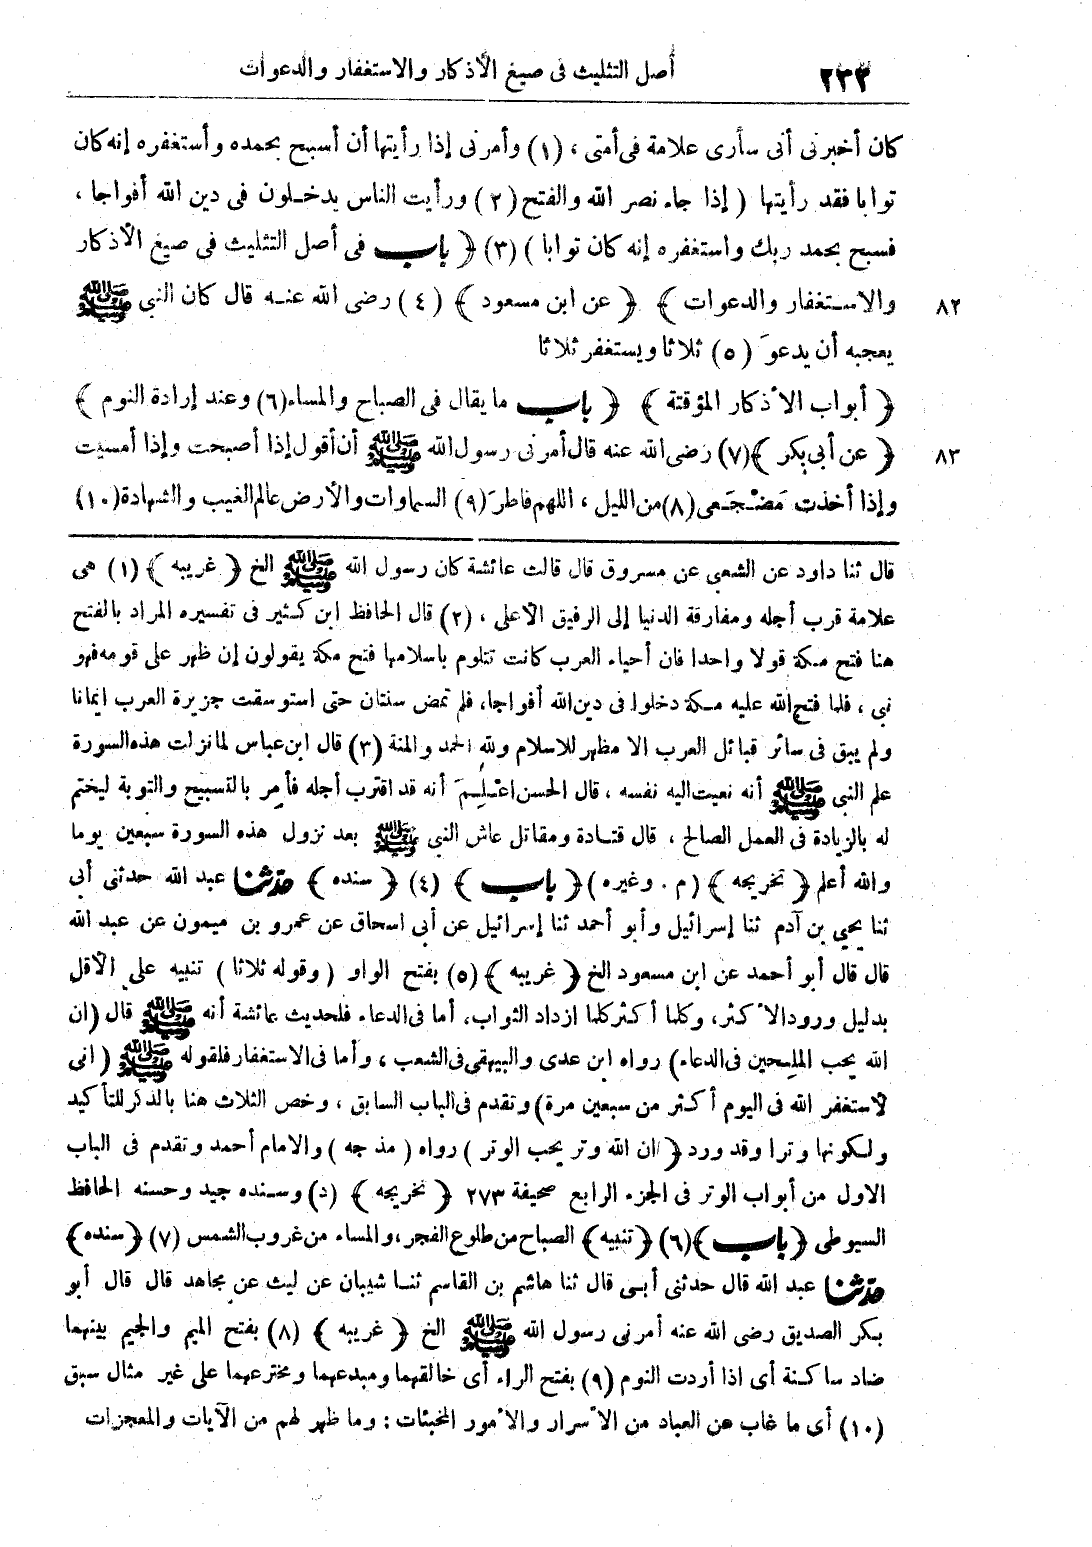 ٢٣٣ أصل التثليث فى صيغ الأذكار والاستغفار والدعوات
كان أخبرنى أنى سأرى علامة فى أمتى ، (١) وأمرنى إذا رأيتها أن أسبح بحمده وأستغفره إنه كان
توابا فقد رأيتها ( إذا جاء نصر الله والفتح (٢) ورأيت الناس يدخـلون فى دين الله أفواجا ،
فسبح بحمد ربك واستغفره إنه كان توابا ) (٣) ﴿ باب فى أصل التثليث فى صيغ الأذكار
والاستغفار والدعوات ﴾ ﴿ عن ابن مسعود ﴾ (٤) رضى الله عنه قال كان النبى ﷺ ٨٢
يعجبه أن يدعوَ (٥) ثلاثا ويستغفر ثلاثا
﴿ أبواب الأذكار المؤقتة ﴾ ﴿ باب ما يقال فى الصباح والمساء (٦) وعند إرادة النوم ﴾
﴿ عن أبى بكر ﴾ (٧) رضى الله عنه قال أمرنى رسول الله ﷺ أن أقول إذا أصبحت وإذا أمسيت ٨٣
وإذا أخذت مَضْجَعى (٨) من الليل ، اللهم فاطرَ (٩) السماوات والأرض عالم الغيب والشهادة (١٠)
قال ثنا داود عن الشعبى عن مسروق قال قالت عائشة كان رسول الله ﷺ الخ ﴿ غريبه ﴾ (١) هى
علامة قرب أجله ومفارقة الدنيا إلى الرفيق الأعلى ، (٢) قال الحافظ ابن كثير فى تفسيره المراد بالفتح
هنا فتح مكة قولا واحدا فان أحياء العرب كانت تتلوم باسلامها فتح مكة يقولون إن ظهر على قومه فهو
نبى ، فلما فتح الله عليه مكة دخلوا فى دين الله أفواجا، فلم تمض سنتان حتى استوسقت جزيرة العرب ايمانا
ولم يبق فى سائر قبائل العرب الا مظهر للاسلام ولله الحمد والمنة (٣) قال ابن عباس لما نزلت هذه السورة
علم النبى ﷺ أنه نعيت اليه نفسه ، قال الحسن اعْلِمَ أنه قد اقترب أجله فأمر بالتسبيح والتوبة ليختم
له بالزيادة فى العمل الصالح ، قال قتادة ومقاتل عاش النبى ﷺ بعد نزول هذه السورة سبعين يوما
والله أعلم ﴿ تخريجه ﴾ (م . وغيره) ﴿ باب ﴾ (٤) ﴿ سنده ﴾ حدثنا عبد الله حدثنى أبى
ثنا يحيى بن آدم ثنا إسرائيل وأبو أحمد ثنا إسرائيل عن أبى اسحاق عن عمرو بن ميمون عن عبد الله
قال قال أبو أحمد عن ابن مسعود الخ ﴿ غريبه ﴾ (٥) بفتح الواو ( وقوله ثلاثا ) تنبيه على الأقل
بدليل ورود الأكثر، وكلما أكثر كلما ازداد الثواب، أما فى الدعاء فلحديث عائشة أنه ﷺ قال (ان
الله يحب الملحين فى الدعاء) رواه ابن عدى والبيهقى فى الشعب ، وأما فى الاستغفار فلقوله ﷺ (انى
لاستغفر الله فى اليوم أكثر من سبعين مرة) وتقدم فى الباب السابق ، وخص الثلاث هنا بالذكر للتأكيد
ولكونها وترا وقد ورد ﴿ ان الله وتر يحب الوتر ) رواه ( مذ جه ) والامام أحمد وتقدم فى الباب
الاول من أبواب الوتر فى الجزء الرابع صحيفة ٢٧٣ ﴿ تخريجه ﴾ (د) وسنده جيد وحسنه الحافظ
السيوطى ﴿ باب ﴾ (٦) ﴿ تنبيه ﴾ الصباح من طلوع الفجر، والمساء من غروب الشمس (٧) ﴿ سنده ﴾
حدثنا عبد الله قال حدثنى أبى قال ثنا هاشم بن القاسم ثنا شيبان عن ليث عن مجاهد قال قال أبو
بكر الصديق رضى الله عنه أمرنى رسول الله ﷺ الخ ﴿ غريبه ﴾ (٨) بفتح الميم والجيم بينهما
ضاد ساكنة أى اذا أردت النوم (٩) بفتح الراء أى خالقهما ومبدعهما ومخترعهما على غير مثال سبق
(١٠) أى ما غاب عن العباد من الأسرار والأمور المخبئات : وما ظهر لهم من الآيات والمعجزات